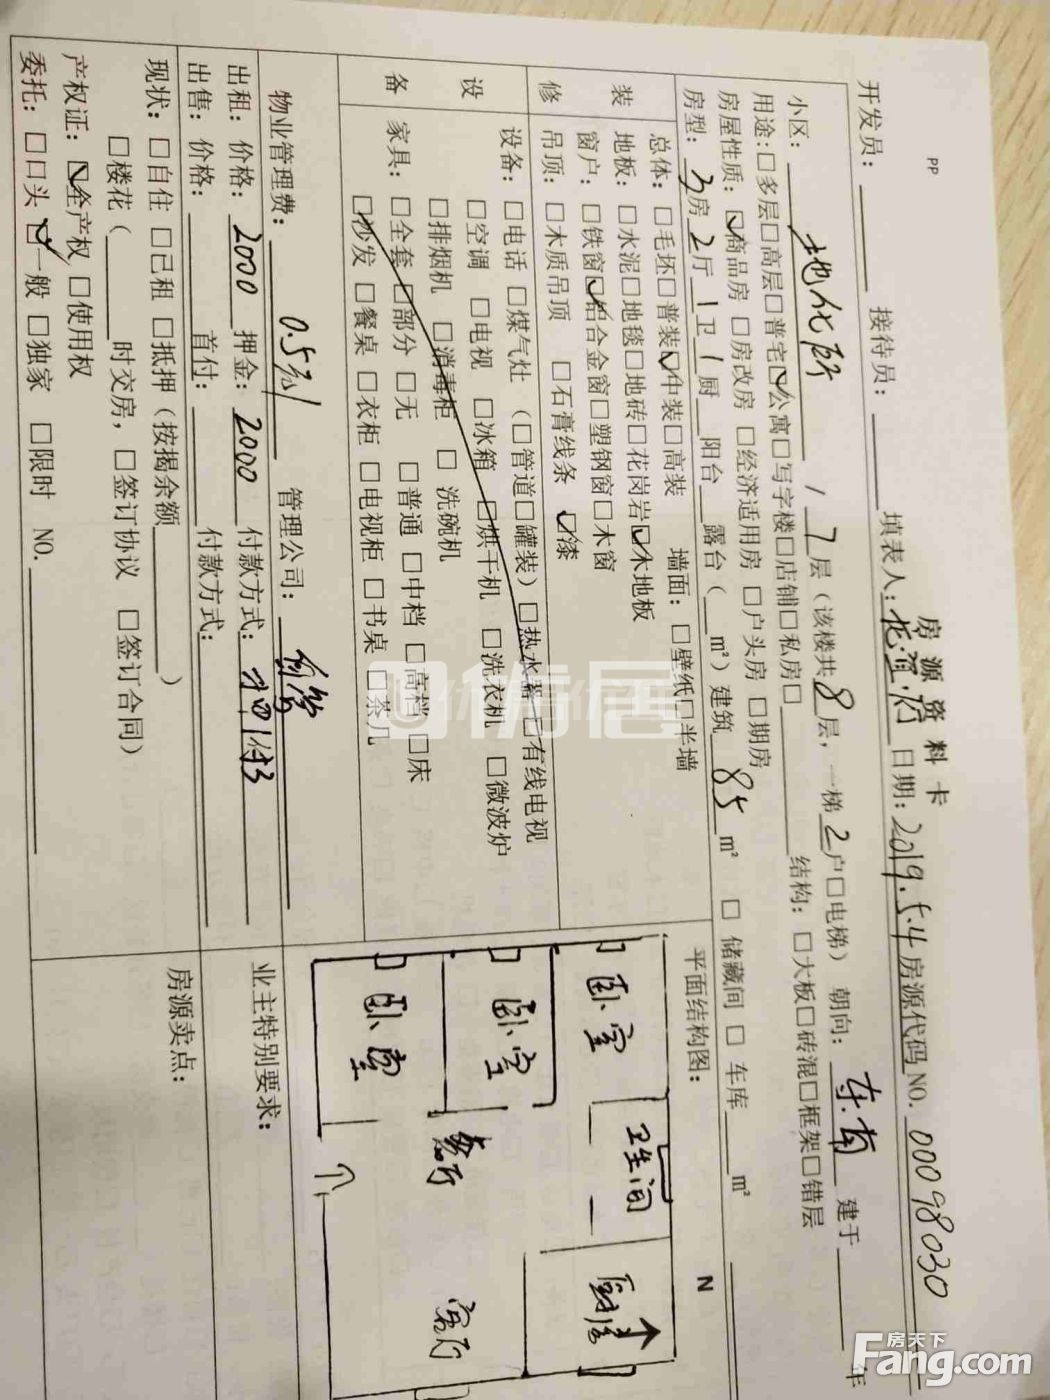 PP
房源资料卡
开发员: 接待员: 填表人: 日期: 2019.5.4 房源代码NO. 00098030
小区: 地化所 / 7 层 (该楼共 8 层, 一梯 2 户□电梯) 朝向: 东南 建于 年
用途:□多层□高层□普宅☑公寓□写字楼□店铺□私房□ 结构: □大板□砖混□框架□错层
房屋性质: ☑商品房 □房改房 □经济适用房 □户头房 □期房
房型: 3 房 2 厅 1 卫 1 厨 阳台 露台 ( m²) 建筑 85 m² □ 储藏间 □ 车库 m²
装修
总体: □毛坯□普装☑中装□高装 墙面: □壁纸□半墙
地板: □水泥□地毯□地砖□花岗岩☑木地板
窗户: □铁窗☑铝合金窗□塑钢窗□木窗
吊顶: □木质吊顶 □石膏线条 ☑漆
设备
设备: □电话 □煤气灶 (□管道□罐装) □热水器 □有线电视
□空调 □电视 □冰箱 □烘干机 □洗衣机 □微波炉
□排烟机 □消毒柜 □ 洗碗机
家具: □全套 □部分 □无 □普通 □中档 □高档 □床
□沙发 □餐桌 □衣柜 □电视柜 □书桌 □茶几
物业管理费: 管理公司: 自管
出租: 价格: 2000 押金: 2000 付款方式:
出售: 价格: 首付: 付款方式:
现状: □自住 □已租 □抵押 (按揭余额 )
□楼花 ( 时交房, □签订协议 □签订合同)
产权证: ☑全产权 □使用权
委托: □口头 ☑一般 □独家 □限时 NO.
平面结构图: N
卧室 卫生间 厨房
卧室 餐厅 客厅
卧室
业主特别要求:
房源卖点:
优居
房天下
Fang.com